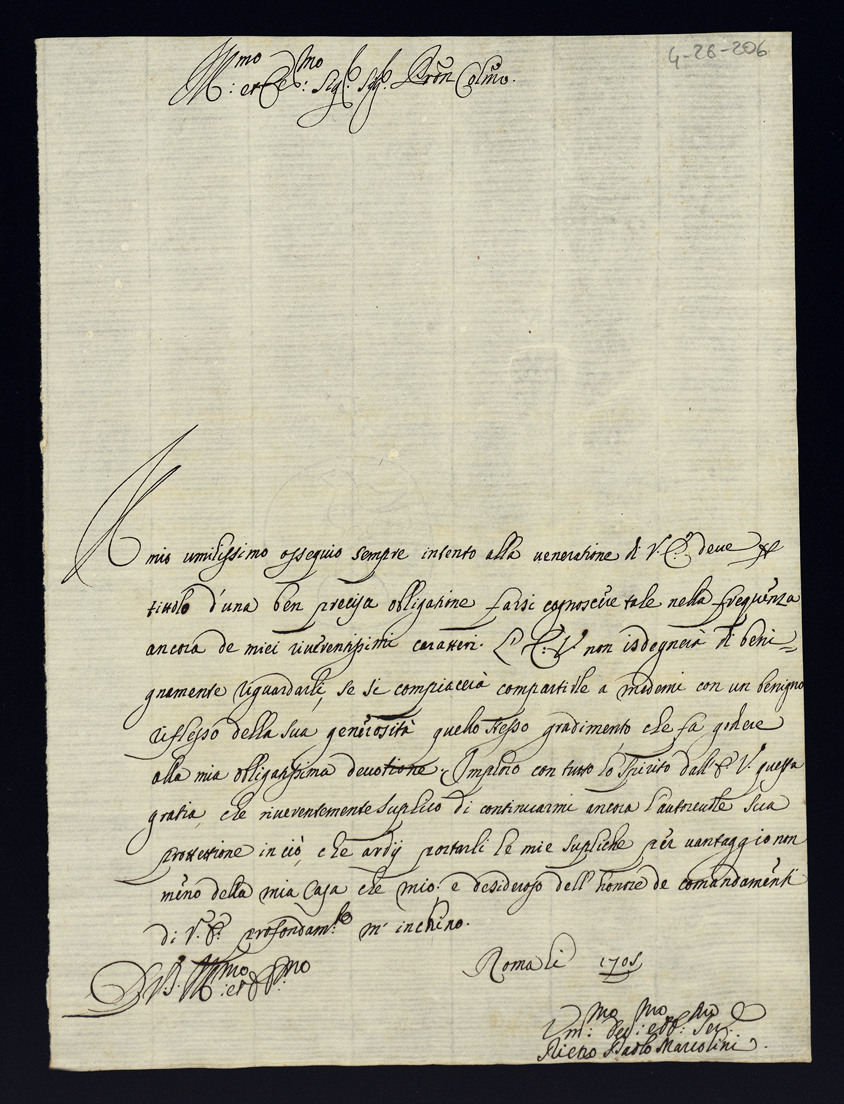 4-26-206
Ill.mo et Ecc.mo Sig.r Sig.r Pron Colmo.
Il mio umilissimo ossequio sempre intento alla veneratione di V. E. deve per
titolo d'una ben precisa obligatione farsi cognoscere tale nella frequenza
ancora de miei riverentissimi caratteri. L'E. V. non isdegnerà di beni=
gnamente riguardarli, se si compiacerà compartirle a medemi con un benigno
riflesso della sua generosità quello stesso gradimento che fa godere
alla mia obligatissima devotione. Imploro con tutto lo spirito dall'E. V. questa
gratia, che riverentemente suplico di continuarmi ancora l'autorevole sua
protettione in ciò, che ardij portarli le mie supliche per vantaggio non
meno della mia Casa che mio. e desideroso dell'honore de comandamenti
di V. E. profondam.te m'inchino.
Roma li 1705
D V. E. Ill.mo et Ecc.mo
Um.mo dev.mo et obb. Ser.
Pietro Paolo Marcolini.